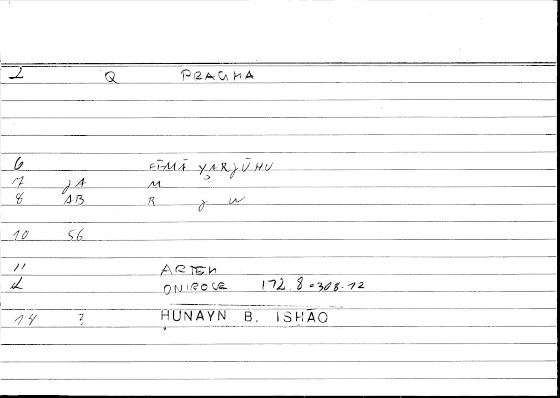 1 Q PRAGMA
6 FĪMĀ YARJŪHU
7 JA M
8 AB R J W
10 56
11 ARTEM
12 ONIROCR 172.8 = 308.12
14 ? HUNAYN B. ISHĀQ